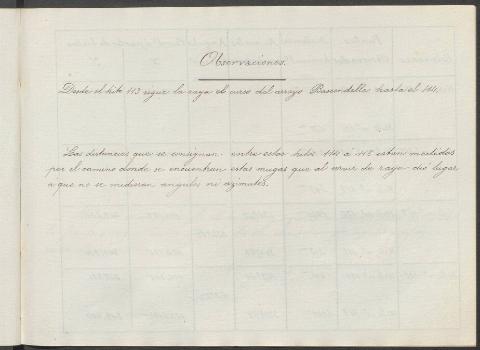 Observaciones.
Desde el hito 113 sigue la raya el curso del arroyo hasta el 114.
Las distancias que se consignan entre estos hitos 114 á 118 estan medidas
por el camino donde se encuentran estas mugas que al servir de raya dió lugar
a que no se midieran angulos ni azimutes.